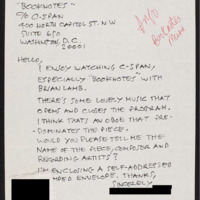 "BOOKNOTES"
C/O C-SPAN
400 NORTH CAPITOL ST. N.W
SUITE 650
WASHINGTON D.C.
20001
HELLO,
I ENJOY WATCHING C-SPAN,
ESPECIALLY "BOOKNOTES" WITH
BRIAN LAMB.
THERE'S SOME LOVELY MUSIC THAT
OPENS AND CLOSES THE PROGRAM.
I THINK THAT'S AN OBOE THAT PRE-
DOMINATES THE PIECE.
WOULD YOU PLEASE TELL ME THE
NAME OF THE PIECE, COMPOSER AND
REGARDING ARTISTS?
I'M ENCLOSING A SELF-ADDRESSED
ENVELOPE. THANKS,
SINCERELY
Booknotes